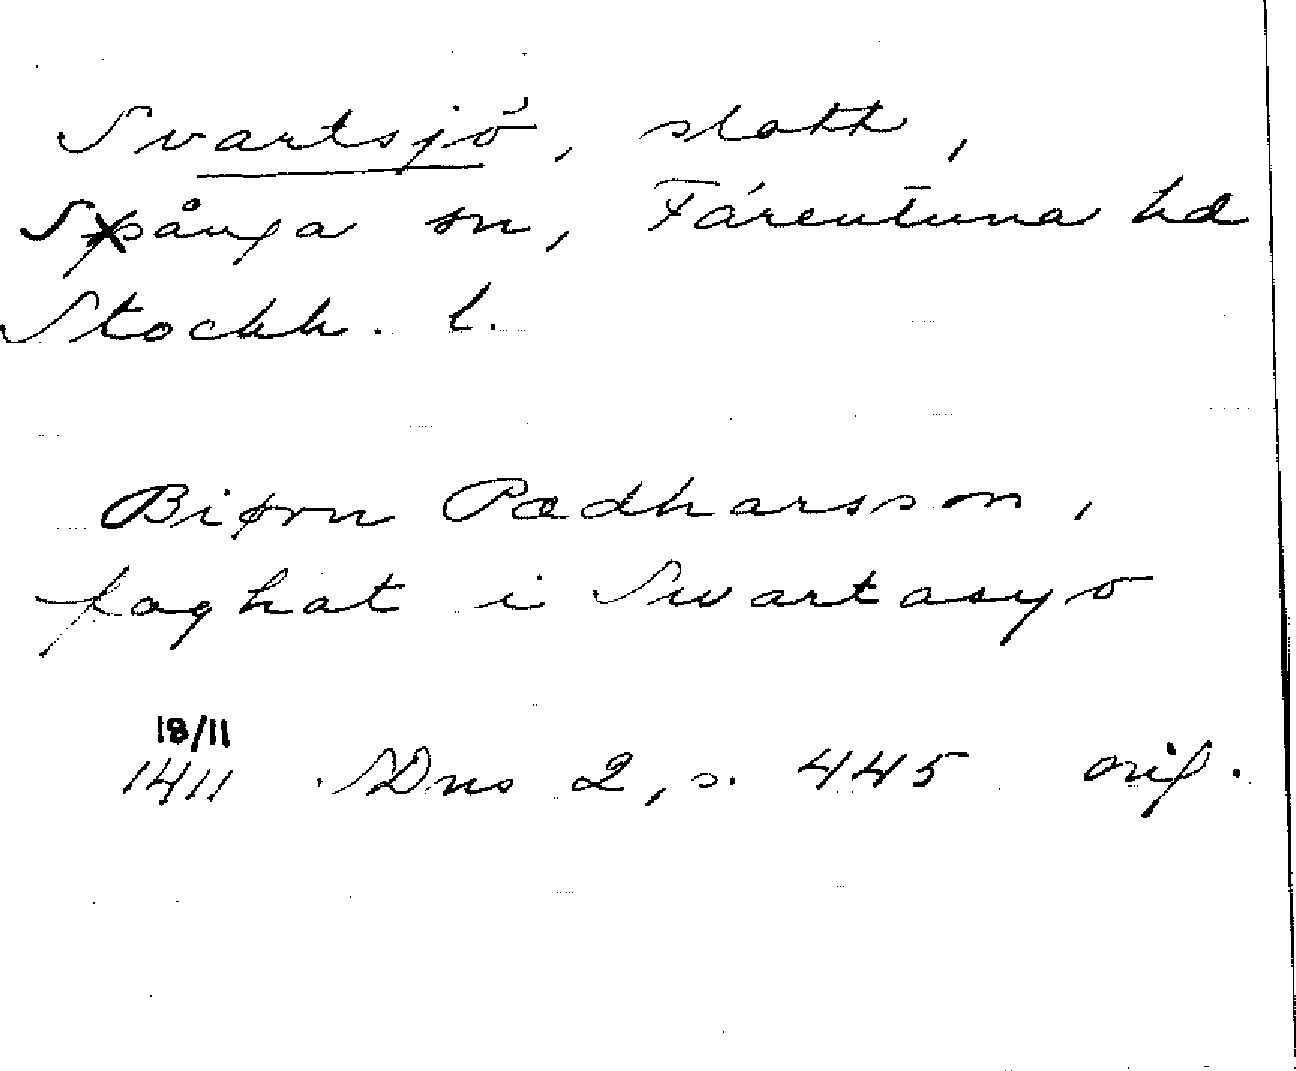 Svartsjö, slott,
Spånga sn, Färentuna hd
Stockh. l.
Biørn Pædharsson,
faghat i Swartasyo
18/11
1411 SDns 2, s. 445 orig.